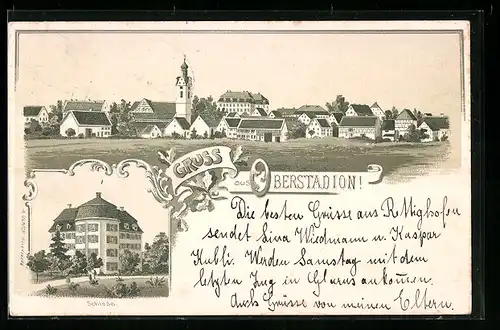 GRUSS
aus OBERSTADION!
Schloss.
Die besten Grüsse aus Rettighofen
sendet Lina Wiedmann u. Kaspar
Kubli. Werden Samstag mit dem
letzten Zug in Glarus ankom̅en.
Auch Grüsse von meinen Eltern.